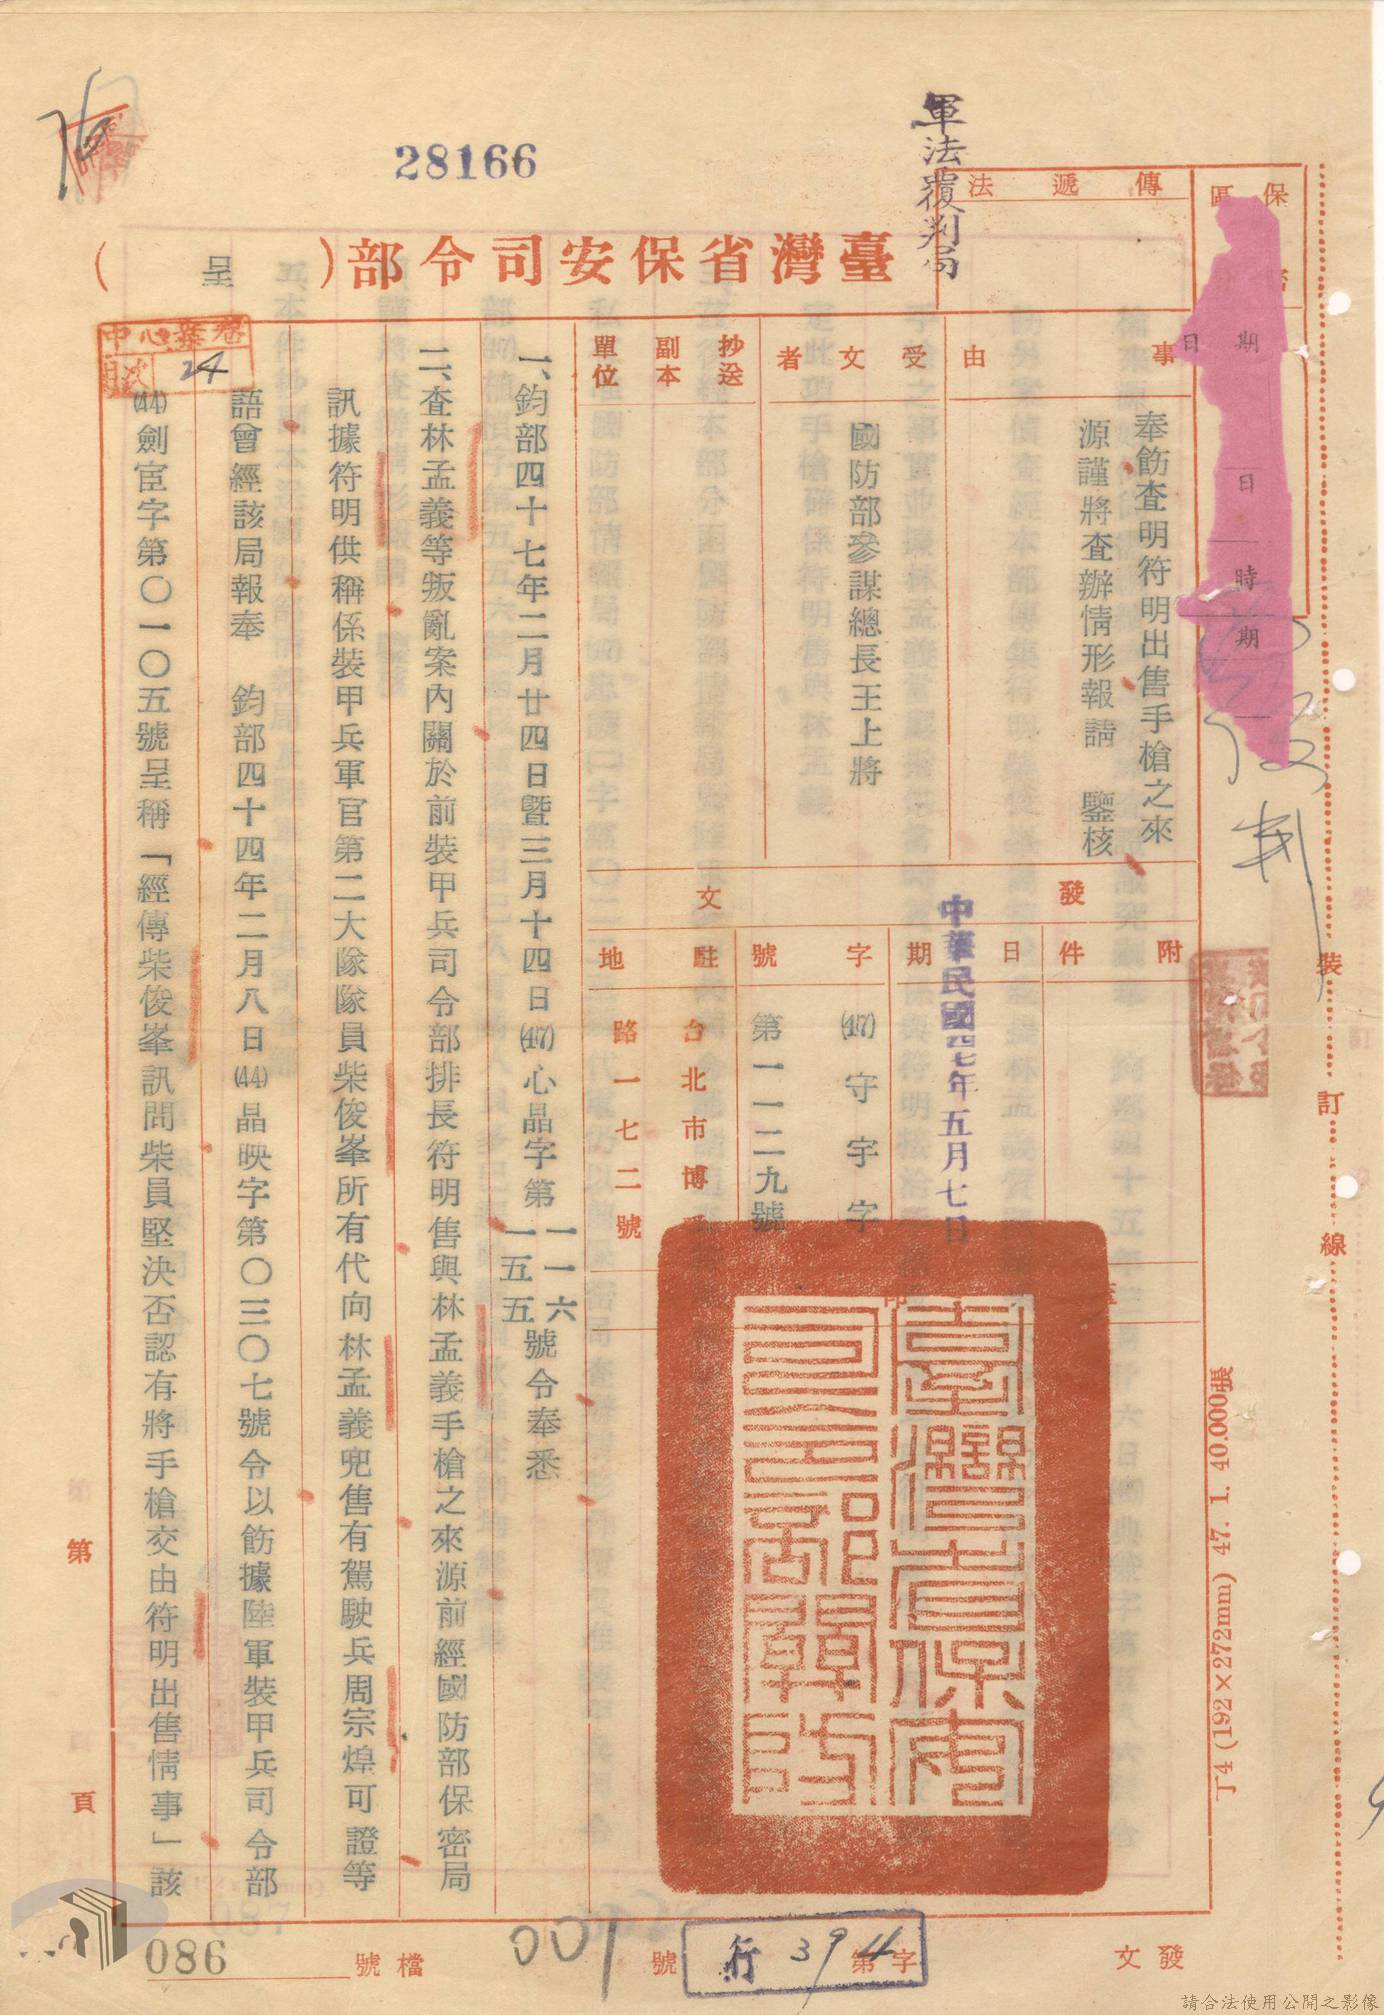 軍法覆判局
28166
臺灣省保安司令部（呈）
傳遞法
保
區
事由
奉飭查明符明出售手槍之來
源謹將查辦情形報請　鑒核
受文者
國防部參謀總長王上將
抄送副本單位
發文
附件
日期
中華民國四七年五月七日
字號
(47)守宇字
第一一二九號
駐地
台北市博
路一七二號
一、鈞部四十七年二月廿四日暨三月十四日(47)心晶字第一一六
一五五號令奉悉
二、查林孟義等叛亂案內關於前裝甲兵司令部排長符明售與林孟義手槍之來源前經國防部保密局
訊據符明供稱係裝甲兵軍官第二大隊隊員柴俊峯所有代向林孟義兜售有駕駛兵周宗煌可證等
語曾經該局報奉　鈞部四十四年二月八日(44)晶映字第〇三〇七號令以飭據陸軍裝甲兵司令部
(44)劍宦字第〇一〇五號呈稱「經傳柴俊峯訊問柴員堅決否認有將手槍交由符明出售情事」該
卷案心中
24
日期
日
時期
裝
訂
線
臺灣省保安司令部關防
丁4(192×272mm) 47. 1. 40.000張
第
頁
發文
字第
行 394
號
001
檔號
086
請合法使用公開之影像